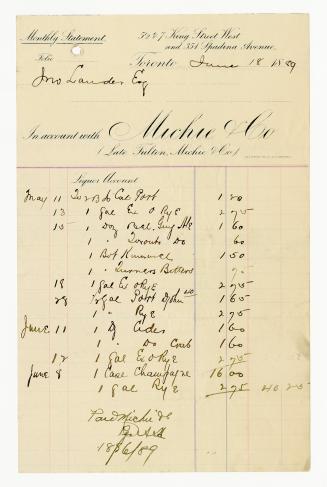 Monthly Statement
5½ & 7 King Street West
and 351 Spadina Avenue.
Folio
Toronto June 18 1889
Jno Lauder Esq
In account with Michie & Co
(Late Fulton, Michie & Co)
Liquor Account
May 11 To 2 Cal Port 1 20
13 1 gal Ex O Rye 2 75
15 1 Doz Ale 1 60
1 " Do 60
1 Bot Kummel 1 50
1 " Turners Bitters
18 1 gal Ex O Rye 2 75
1 gal Port 1 65
1 " Rye 2 75
June 11 1 D Cider 1 60
1 " Do Crab 1 60
12 1 gal Ex O Rye 2 75
June 8 1 Case Champagne 16 00
1 gal Rye 2 75 40 25
Paid Michie & Co
18/6/89